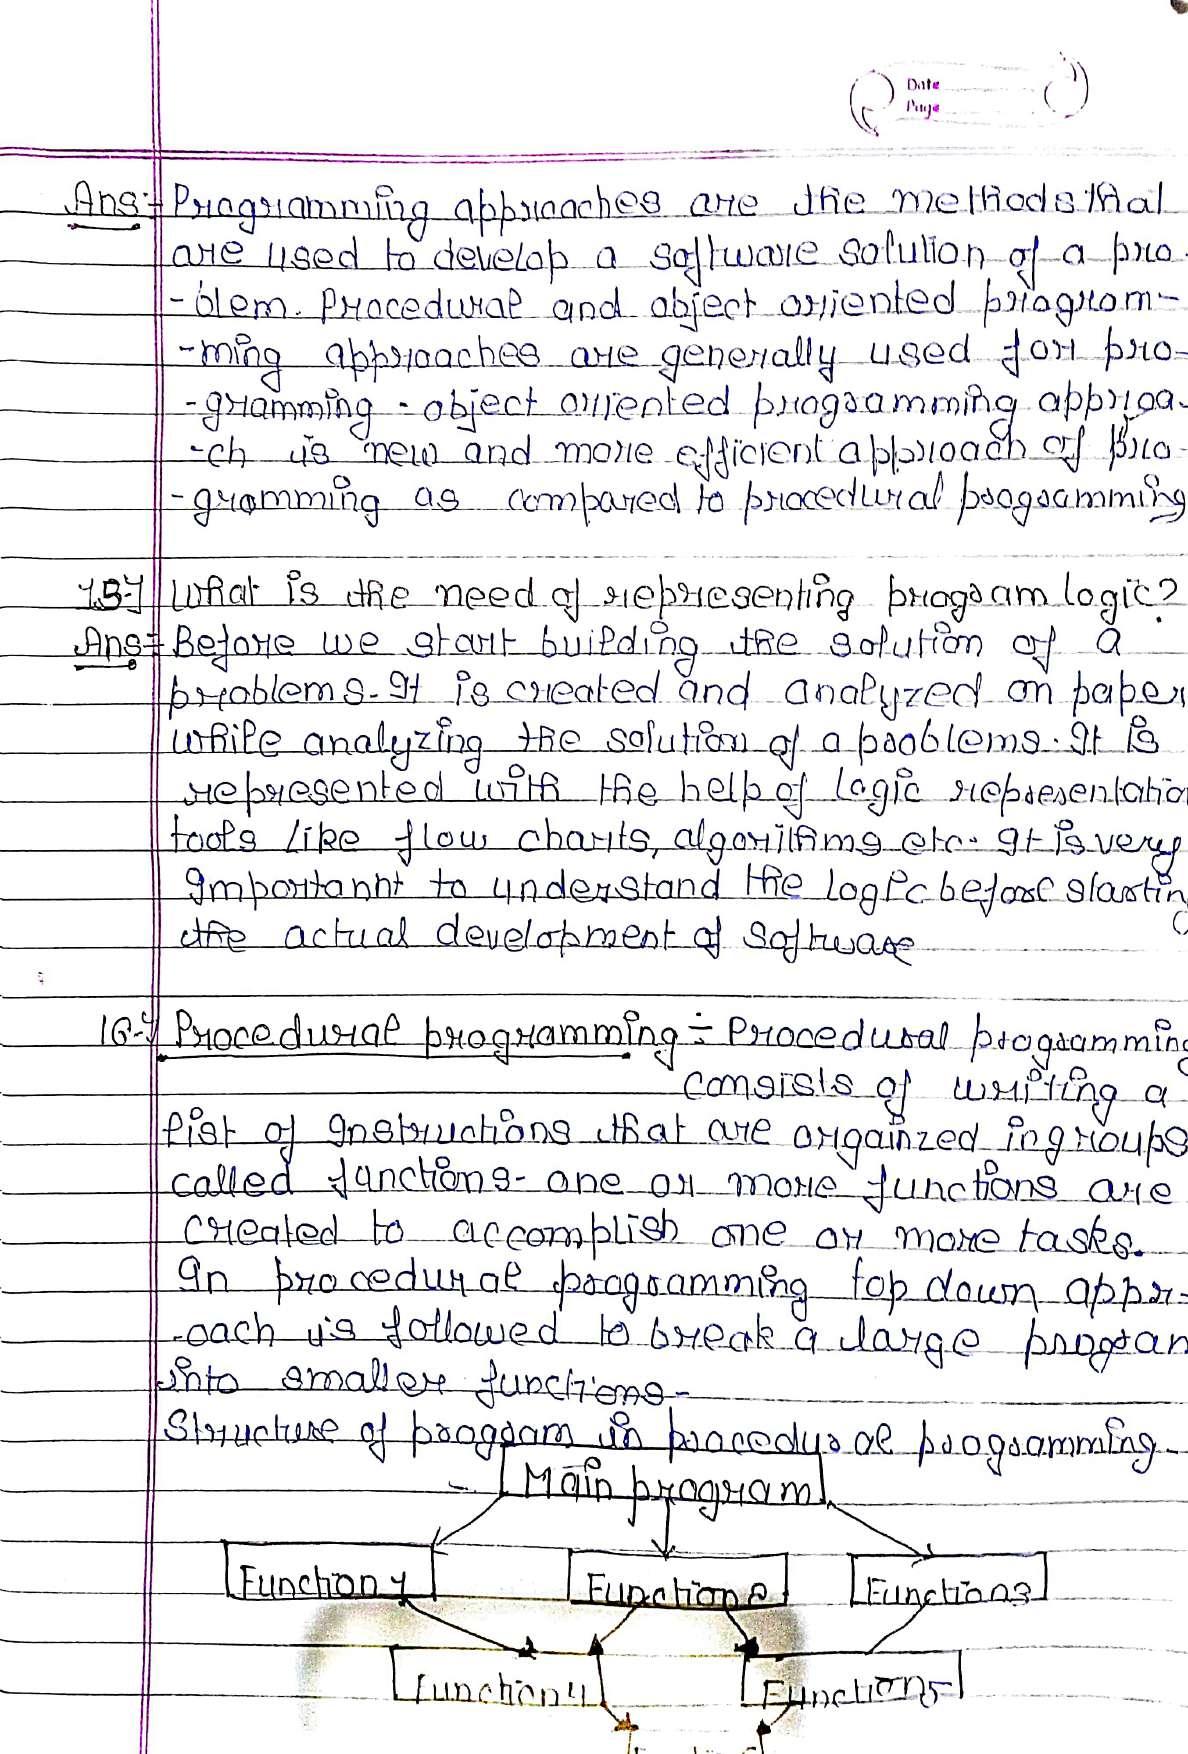 Date
Page
Ans:- Programming approaches are the methods that
are used to develop a software solution of a pro-
-blem. Procedural and object oriented program-
-ming approaches are generally used for pro-
-gramming - object oriented programming approa-
-ch is new and more efficient approach of pro-
-gramming as compared to procedural programming
15-) What is the need of representing program logic?
Ans:- Before we start building the solution of a
problems. It is created and analyzed on paper
while analyzing the solution of a problems. It is
represented with the help of logic representatio
tools like flow charts, algorithms etc. It is very
Importannt to understand the logic before startin
the actual development of software
16-) Procedural programming :- Procedural programming
consists of writing a
list of Instructions that are orgainzed in groups
called functions- one or more functions are
created to accomplish one or more tasks.
In procedural programming top down appr-
-oach is followed to break a large progran
into smaller functions-
Structure of program in procedural programming-
Main program
Function 1 Function 2 Function 3
Function 4 Function 5